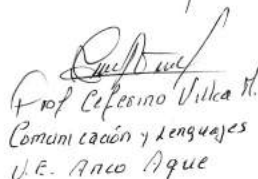 Prof Ceferino Villca M.
Comunicación y Lenguajes
U.E. Anco Aque